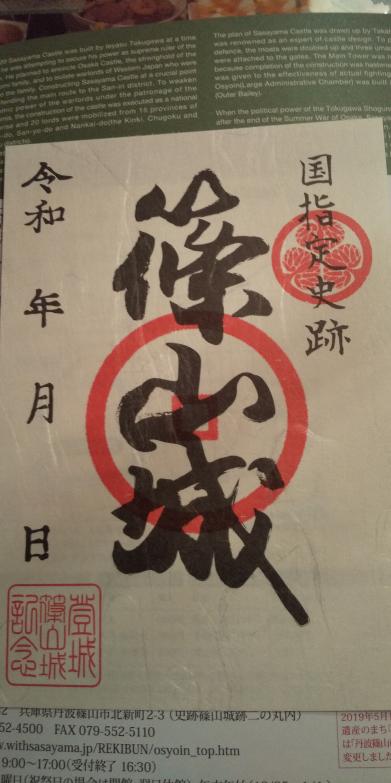 Sasayama Castle was built by Ieyasu Tokugawa at a time
attempting to secure his power as supreme ruler of the
He planned to enclose Osaka Castle, the stronghold of the
family, and to isolate warlords of Western Japan who were
the family. Constructing Sasayama Castle at a crucial point
the main route to the San-in district. To weaken
power of the warlords under the patronage of the
the construction of the castle was executed as a national
and 20 lords were mobilized from 15 provinces of
San-yo-do and Nankai-do(the Kinki, Chugoku and
The plan of Sasayama Castle was drawn up by
was renowned as an expert of castle design. To
defence, the moats were doubled up and three
were attached to the gates. The Main Tower was
because completion of the construction was
was given to the effectiveness of actual
Osyoin(Large Administrative Chamber) was built
(Outer Bailey).
When the political power of the Tokugawa
after the end of the Summer War of Osaka,
国指定史跡
篠山城
令和 年 月 日
登城
篠山城
記念
兵庫県丹波篠山市北新町2-3 (史跡篠山城跡二の丸内)
52-4500 FAX 079-552-5110
w.withsasayama.jp/REKIBUN/osyoin_top.htm
9:00〜17:00(受付終了 16:30)
2019年5月
遺産のまち
は「丹波篠山
変更しました